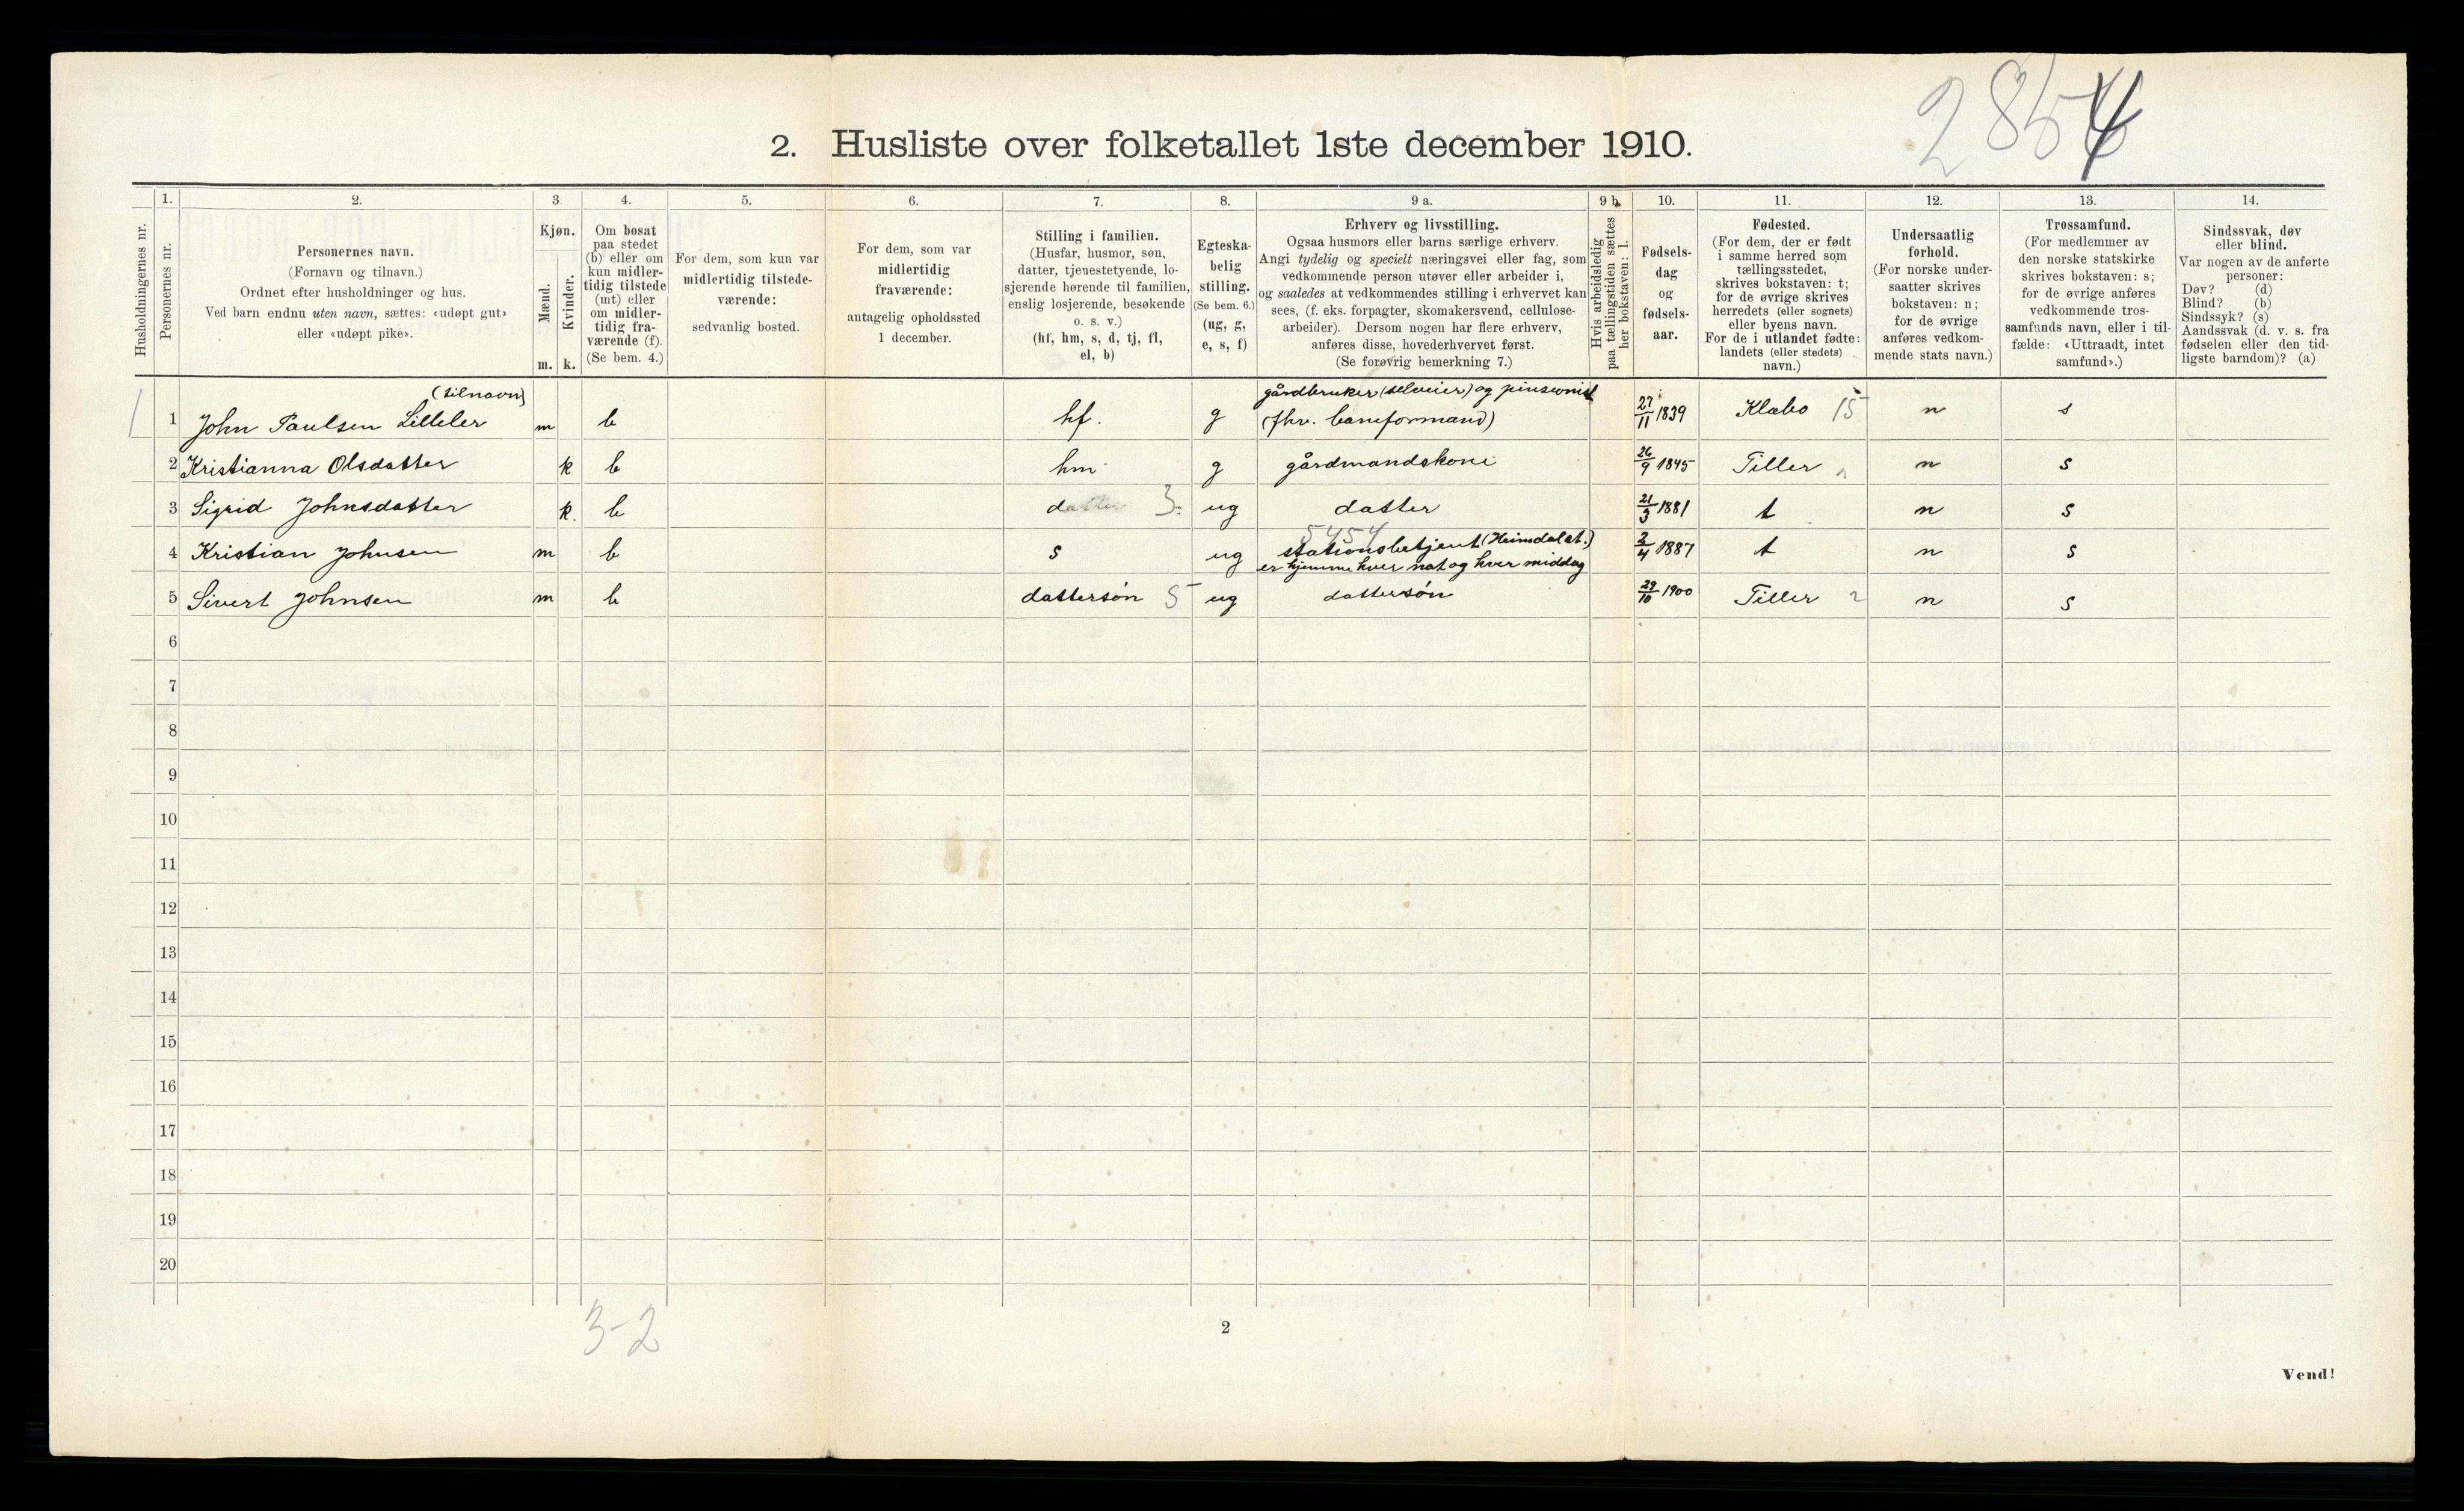 2854
2. Husliste over folketallet 1ste december 1910.
Husholdningernes nr.
1.
Personernes nr.
2.
Personernes navn.
(Fornavn og tilnavn.)
Ordnet efter husholdninger og hus.
Ved barn endnu uten navn, sættes: «udøpt gut»
eller «udøpt pike».
3.
Kjøn.
Mænd.
m.
Kvinder.
k.
4.
Om bosat
paa stedet
(b) eller om
kun midler-
tidig tilstede
(mt) eller
om midler-
tidig fra-
værende (f).
(Se bem. 4.)
5.
For dem, som kun var
midlertidig tilstede-
værende:
sedvanlig bosted.
6.
For dem, som var
midlertidig
fraværende:
antagelig opholdssted
1 december.
7.
Stilling i familien.
(Husfar, husmor, søn,
datter, tjenestetyende, lo-
sjerende hørende til familien,
enslig losjerende, besøkende
o. s. v.)
(hf, hm, s, d, tj, fl,
el, b)
8.
Egteska-
belig
stilling.
(Se bem. 6.)
(ug, g,
e, s, f)
9 a.
Erhverv og livsstilling.
Ogsaa husmors eller barns særlige erhverv.
Angi tydelig og specielt næringsvei eller fag, som
vedkommende person utøver eller arbeider i,
og saaledes at vedkommendes stilling i erhvervet kan
sees, (f. eks. forpagter, skomakersvend, cellulose-
arbeider). Dersom nogen har flere erhverv,
anføres disse, hovederhvervet først.
(Se forøvrig bemerkning 7.)
9 b.
Hvis arbeidsledig
paa tællingstiden sættes
her bokstaven: l.
10.
Fødsels-
dag
og
fødsels-
aar.
11.
Fødested.
(For dem, der er født
i samme herred som
tællingsstedet,
skrives bokstaven: t;
for de øvrige skrives
herredets (eller sognets)
eller byens navn.
For de i utlandet fødte:
landets (eller stedets)
navn.)
12.
Undersaatlig
forhold.
(For norske under-
saatter skrives
bokstaven: n;
for de øvrige
anføres vedkom-
mende stats navn.)
13.
Trossamfund.
(For medlemmer av
den norske statskirke
skrives bokstaven: s;
for de øvrige anføres
vedkommende tros-
samfunds navn, eller i til-
fælde: «Uttraadt, intet
samfund».)
14.
Sindssvak, døv
eller blind.
Var nogen av de anførte
personer:
Døv? (d)
Blind? (b)
Sindssyk? (s)
Aandssvak (d. v. s. fra
fødselen eller den tid-
ligste barndom)? (a)
(tilnavn) gårdbruker (selveier) og pinsionist
1 1 John Paulsen Lilleler m b hf. g (fhv. baneformand) 27/11 1839 Klæbo 15 n s
2 Kristianna Olsdatter k b hm g gårdmandskone 26/9 1845 Tiller 2 n s
3 Sigrid Johnsdatter k. b datter 3 ug datter 21/3 1881 t n s
5454
4 Kristian Johnsen m b s ug stationsbetjent (Heimdal st.) 2/4 1887 t n s
er hjemme hver nat og hver middag
5 Sivert Johnsen m b dattersøn 5 ug dattersøn 29/10 1900 Tiller 2 n s
6
7
8
9
10
11
12
13
14
15
16
17
18
19
20
3-2
2
Vend!